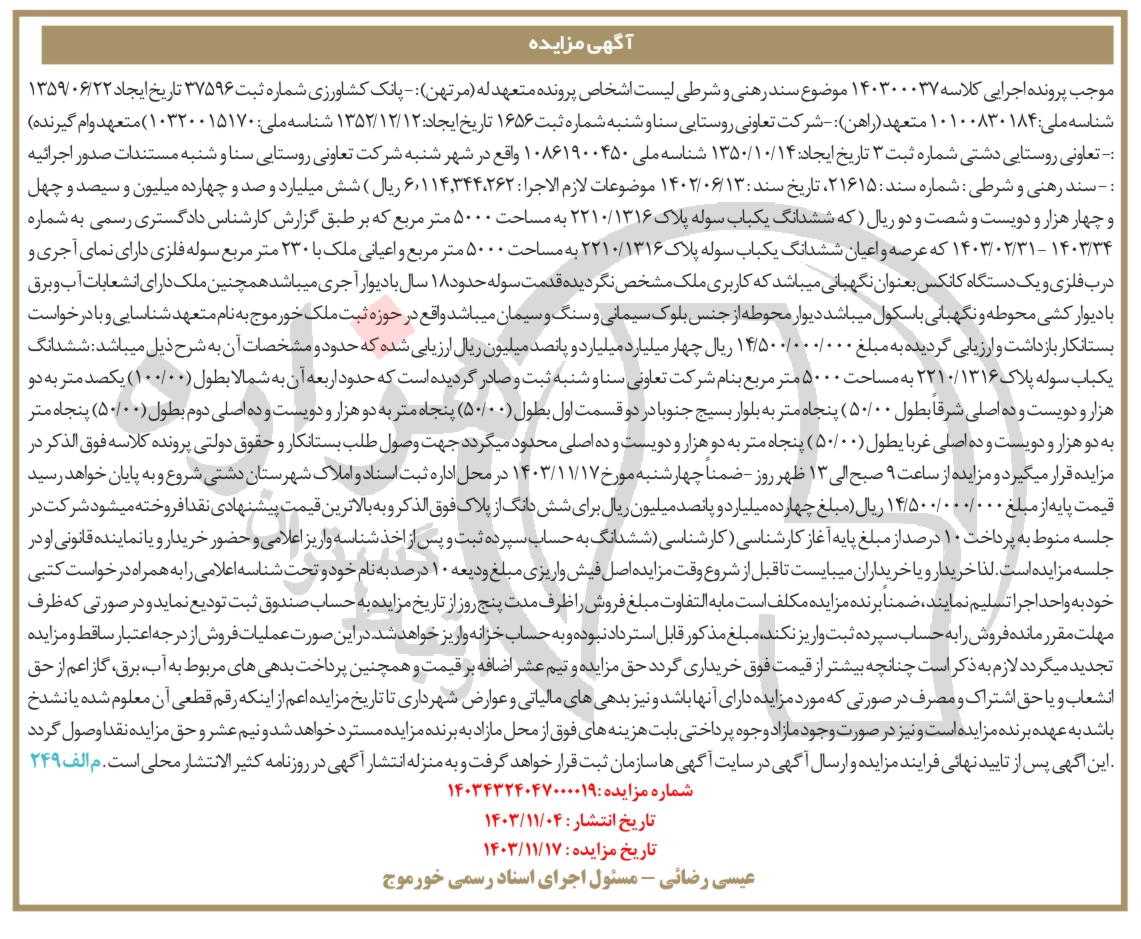 آگهی مزایده
موجب پرونده اجرایی کلاسه ۱۴۰۳۰۰۰۳۷ موضوع سند رهنی و شرطی لیست اشخاص پرونده متعهد له (مرتهن): - بانک کشاورزی شماره ثبت ۳۷۵۹۶ تاریخ ایجاد ۱۳۵۹/۰۶/۲۲
شناسه ملی: ۱۰۱۰۰۸۳۰۱۸۴ متعهد (راهن): - شرکت تعاونی روستایی سنا و شنبه شماره ثبت ۱۶۵۶ تاریخ ایجاد: ۱۳۵۲/۱۲/۱۲ شناسه ملی: ۱۰۳۲۰۰۱۵۱۷۰) متعهد وام گیرنده)
: - تعاونی روستایی دشتی شماره ثبت ۳ تاریخ ایجاد: ۱۳۵۰/۱۰/۱۴ شناسه ملی ۱۰۸۶۱۹۰۰۴۵۰ واقع در شهر شنبه شرکت تعاونی روستایی سنا و شنبه مستندات صدور اجرائیه
: - سند رهنی و شرطی : شماره سند : ۲۱۶۱۵، تاریخ سند : ۱۴۰۲/۰۶/۱۳ موضوعات لازم الاجرا : ۶,۱۱۴,۳۴۴,۲۶۲ ریال ) شش میلیارد و صد و چهارده میلیون و سیصد و چهل
و چهار هزار و دویست و شصت و دو ریال ( که ششدانگ یکباب سوله پلاک ۲۲۱۰/۱۳۱۶ به مساحت ۵۰۰۰ متر مربع که بر طبق گزارش کارشناس دادگستری رسمی به شماره
۱۴۰۳/۳۴ – ۱۴۰۳/۰۲/۳۱ که عرصه و اعیان ششدانگ یکباب سوله پلاک ۲۲۱۰/۱۳۱۶ به مساحت ۵۰۰۰ متر مربع و اعیانی ملک با ۲۳۰ متر مربع سوله فلزی دارای نمای آجری و
درب فلزی و یک دستگاه کانکس بعنوان نگهبانی میباشد که کاربری ملک مشخص نگردیده قدمت سوله حدود ۱۸ سال با دیوار آجری میباشد همچنین ملک دارای انشعابات آب و برق
با دیوار کشی محوطه و نگهبانی باسکول میباشد دیوار محوطه از جنس بلوک سیمانی و سنگ و سیمان میباشد واقع در حوزه ثبت ملک خورموج به نام متعهد شناسایی و با درخواست
بستانکار بازداشت و ارزیابی گردیده به مبلغ ۱۴/۵۰۰/۰۰۰/۰۰۰ ریال چهار میلیارد میلیارد و پانصد میلیون ریال ارزیابی شده که حدود و مشخصات آن به شرح ذیل میباشد: ششدانگ
یکباب سوله پلاک ۲۲۱۰/۱۳۱۶ به مساحت ۵۰۰۰ متر مربع بنام شرکت تعاونی سنا و شنبه ثبت و صادر گردیده است که حدود اربعه آن به شمالا بطول (۱۰۰/۰۰) یکصد متر به دو
هزار و دویست و ده اصلی شرقاً بطول ۵۰/۰۰ ) پنجاه متر به بلوار بسیج جنوبا در دو قسمت اول بطول (۵۰/۰۰) پنجاه متر به دو هزار و دویست و ده اصلی دوم بطول (۵۰/۰۰) پنجاه متر
به دو هزار و دویست و ده اصلی غربا بطول (۵۰/۰۰) پنجاه متر به دو هزار و دویست و ده اصلی محدود میگردد جهت وصول طلب بستانکار و حقوق دولتی پرونده کلاسه فوق الذکر در
مزایده قرار میگیرد و مزایده از ساعت ۹ صبح الی ۱۳ ظهر روز - ضمناً چهارشنبه مورخ ۱۴۰۳/۱۱/۱۷ در محل اداره ثبت اسناد و املاک شهرستان دشتی شروع و به پایان خواهد رسید
قیمت پایه از مبلغ ۱۴/۵۰۰/۰۰۰/۰۰۰ ریال (مبلغ چهارده میلیارد و پانصد میلیون ریال برای شش دانگ از پلاک فوق الذکر و به بالاترین قیمت پیشنهادی نقدا فروخته میشود شرکت در
جلسه منوط به پرداخت ۱۰ درصد از مبلغ پایه آغاز کارشناسی ( کارشناسی (ششدانگ به حساب سپرده ثبت و پس از اخذ شناسه واریز اعلامی و حضور خریدار و یا نماینده قانونی او در
جلسه مزایده است. لذا خریدار و یا خریداران میبایست تا قبل از شروع وقت مزایده اصل فیش واریزی مبلغ ودیعه ۱۰ درصد به نام خود و تحت شناسه اعلامی را به همراه درخواست کتبی
خود به واحد اجرا تسلیم نمایند، ضمناً برنده مزایده مکلف است مابه التفاوت مبلغ فروش را ظرف مدت پنج روز از تاریخ مزایده به حساب صندوق ثبت تودیع نماید و در صورتی که ظرف
مهلت مقرر مانده فروش را به حساب سپرده ثبت واریز نکند، مبلغ مذکور قابل استرداد نبوده و به حساب خزانه واریز خواهد شد. در این صورت عملیات فروش از درجه اعتبار ساقط و مزایده
تجدید میگردد لازم به ذکر است چنانچه بیشتر از قیمت فوق خریداری گردد حق مزایده و تیم عشر اضافه بر قیمت و همچنین پرداخت بدهی های مربوط به آب، برق، گاز اعم از حق
انشعاب و یا حق اشتراک و مصرف در صورتی که مورد مزایده دارای آنها باشد و نیز بدهی های مالیاتی و عوارض شهرداری تا تاریخ مزایده اعم از اینکه رقم قطعی آن معلوم شده یا نشدخ
باشد به عهده برنده مزایده است و نیز در صورت وجود مازاد وجوه پرداختی بابت هزینه های فوق از محل مازاد به برنده مزایده مسترد خواهد شد و نیم عشر و حق مزایده نقدا وصول گردد
.این اگهی پس از تایید نهائی فرایند مزایده و ارسال آگهی در سایت آگهی ها سازمان ثبت قرار خواهد گرفت و به منزله انتشار آگهی در روزنامه کثیر الانتشار محلی است. م الف ۲۴۹
شماره مزایده :۱۴۰۳۴۳۲۴۰۴۷۰۰۰۰۱۹
تاریخ انتشار : ۱۴۰۳/۱۱/۰۴
تاریخ مزایده : ۱۴۰۳/۱۱/۱۷
عیسی رضائی – مسئول اجرای اسناد رسمی خورموج